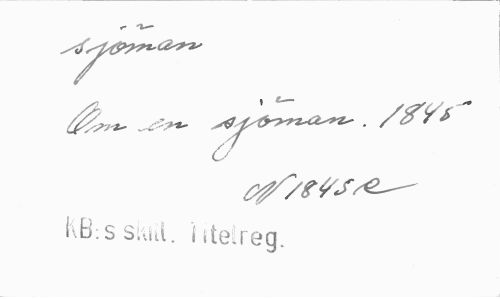 sjöman
Om en sjöman. 1845
N 1845 e
KB:s skill. Titelreg.